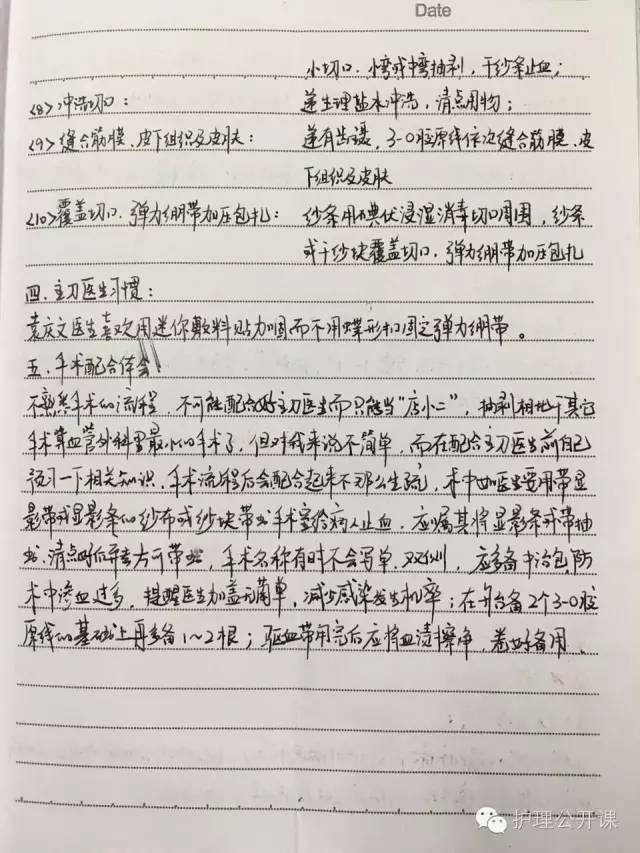 Date
小切口，小弯或中弯抽剥，干纱条止血；
<8>冲洗切口： 递生理盐水冲洗，清点用物；
<9>缝合筋膜、皮下组织及皮肤： 递有齿镊，3-0胶原线依次缝合筋膜、皮
下组织及皮肤
<10>覆盖切口，弹力绷带加压包扎： 纱条用碘伏浸湿消毒切口周围，纱条
或干纱块覆盖切口，弹力绷带加压包扎
四、主刀医生习惯：
袁庆文医生喜欢用迷你敷料贴加固而不用蝶形扣固定弹力绷带。
五、手术配合体会：
不熟悉手术的流程，不可能配合好主刀医生而只能当“店小二”，抽剥相比于其它
手术算血管外科里最小的手术了，但对我来说不简单，而在配合主刀医生前自己
预习一下相关知识、手术流程后会配合起来不那么生疏，术中如医生要用带显
影带或显影条的纱布或纱块带出手术室给病人止血，应嘱其将显影条或带抽
出，清点好后并去方可带出，手术名称有时不会写单、双侧，应多备中治包，防
术中渗血过多，提醒医生加盖无菌单，减少感染发生机率；在开台备2个3-0胶
原线的基础上再多备1～2根；驱血带用完后应将血渍擦净，卷好备用。
护理公开课